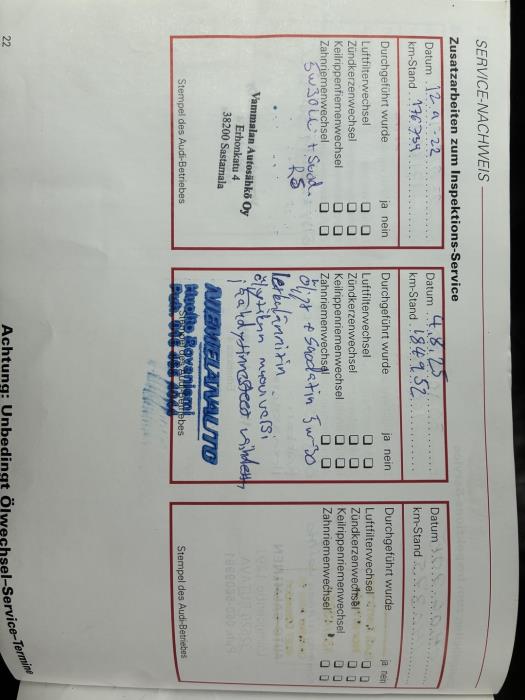 SERVICE-NACHWEIS
Zusatzarbeiten zum Inspektions-Service
Datum 12.9-22
km-Stand 176794
Durchgeführt wurde ja nein
Luftfilterwechsel
Zündkerzenwechsel
Keilrippenriemenwechsel
Zahnriemenwechsel
5w30 + Suod.
Vammalan Autosähkö Oy
Erhonkatu 4
38200 Sastamala
Stempel des Audi-Betriebes
Datum 4.8.25
km-Stand 184952
Durchgeführt wurde ja nein
Luftfilterwechsel
Zündkerzenwechsel
Keilrippenriemenwechsel
Zahnriemenwechsel
Öljyt + Suodatin 5w30
öljytilan muovi
NIEMELÄN AUTO
Huolto Rovaniemi
Datum
km-Stand
Durchgeführt wurde ja nein
Luftfilterwechsel
Zündkerzenwechsel
Keilrippenriemenwechsel
Zahnriemenwechsel
Stempel des Audi-Betriebes
22
Achtung: Unbedingt Ölwechsel-Service-Termine